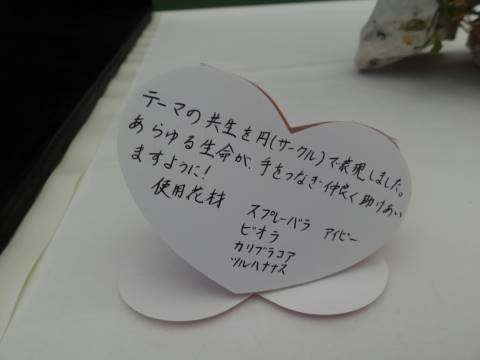 テーマの共生を円(サークル)で表現しました。
あらゆる生命が、手をつなぎ仲良く助けあい
ますように!
使用花材 スプレーバラ アイビー
ビオラ
カリブラコア
ツルハナナス